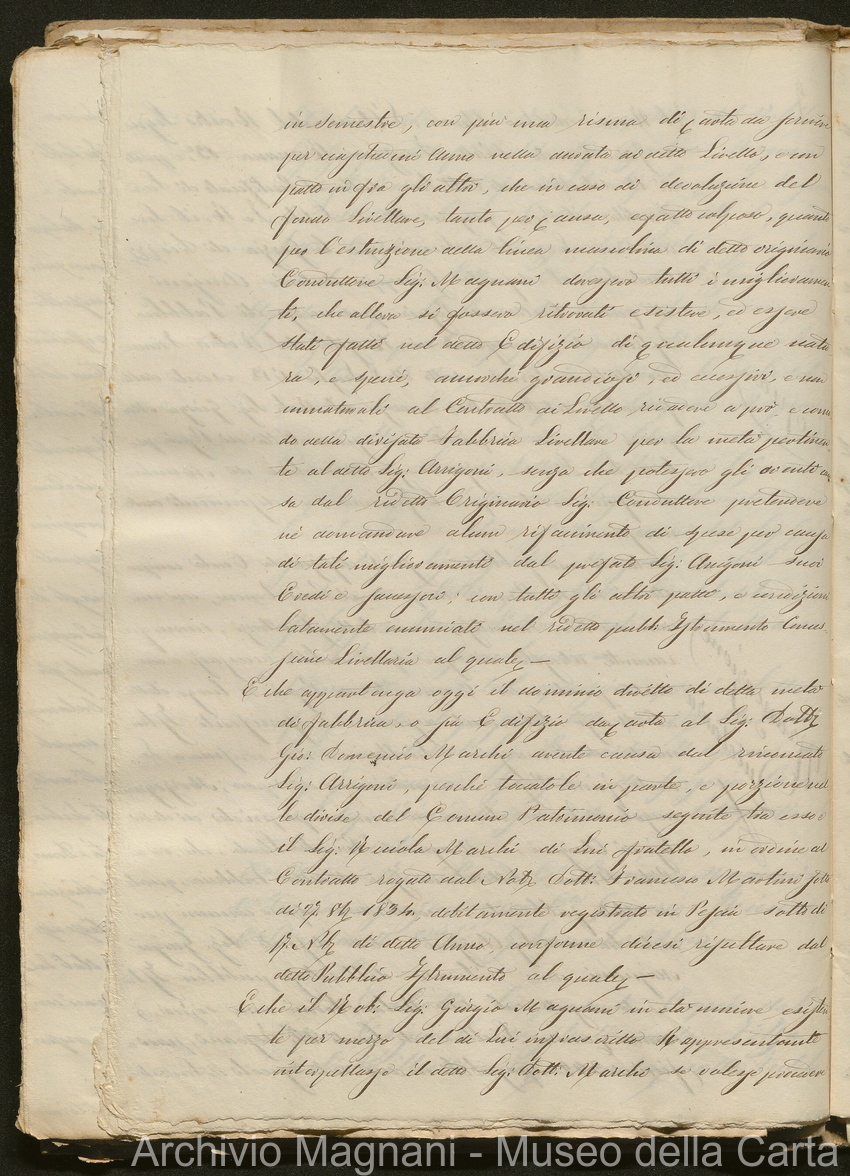 in semestre, con più una risma di Carta da fornirsi
per ciascheduni Anno nella durata di detto Livello, e con
patto infra gli altri, che in caso di devoluzione del
fondo Livellare, tanto per Causa, e fatto colposo, quanto
per l'estinzione della linea mascolina di detto originario
Conduttore Sig: Magnani dovessero tutti i migliorament
ti, che allora si fossero ritrovati esistere, ed essere
stati fatti nel detto Edifizio di qualunque natu
ra, e speci, ancorchè grandiosi, ed eccessivi, e non
connaturali al Contratto di Livello ricadere a prò, e como
do della divisata Fabbrica Livellare per la metà pertinen
te al detto Sig: Arrigoni, senza che potessero gli aventi cau
sa dal ridetto Originario Sig: Conduttore pretendere
nè domandare alcun rifacimento di spese per causa
di tali miglioramenti dal prefato Sig: Arrigoni suoi
Eredi e successori; con tutti gli altri patti, e condizioni
latamente enunciati nel ridetto pubb: Istrumento Conces
sione Livellaria al quale —
E che appartenga oggi il dominio diretto di detta metà
di fabbrica, o sia Edifizio da Carta al Sig: Dott:
Gio: Domenico Marchi avente causa dal rinomato
Sig: Arrigoni, perchè toccatole in parte, e porzione nel
le divise del Comun Patrimonio seguite tra esso e
il Sig: Niccola Marchi di Lui fratello, in ordine al
Contratto rogato dal Not: Dott: Francesco Martini sotto
di 27. 8bre 1834. debitamente registrato in Pescia sotto di
17. Nbre di detto Anno, conforme dicesi risultare dal
detto Pubblico Istrumento al quale —
E che il Nob: Sig: Giorgio Magnani in età minore esisten
te per mezzo del di Lui infrascritto Rappresentante
interpellasse il detto Sig: Dott: Marchi se volesse procedere
Archivio Magnani - Museo della Carta